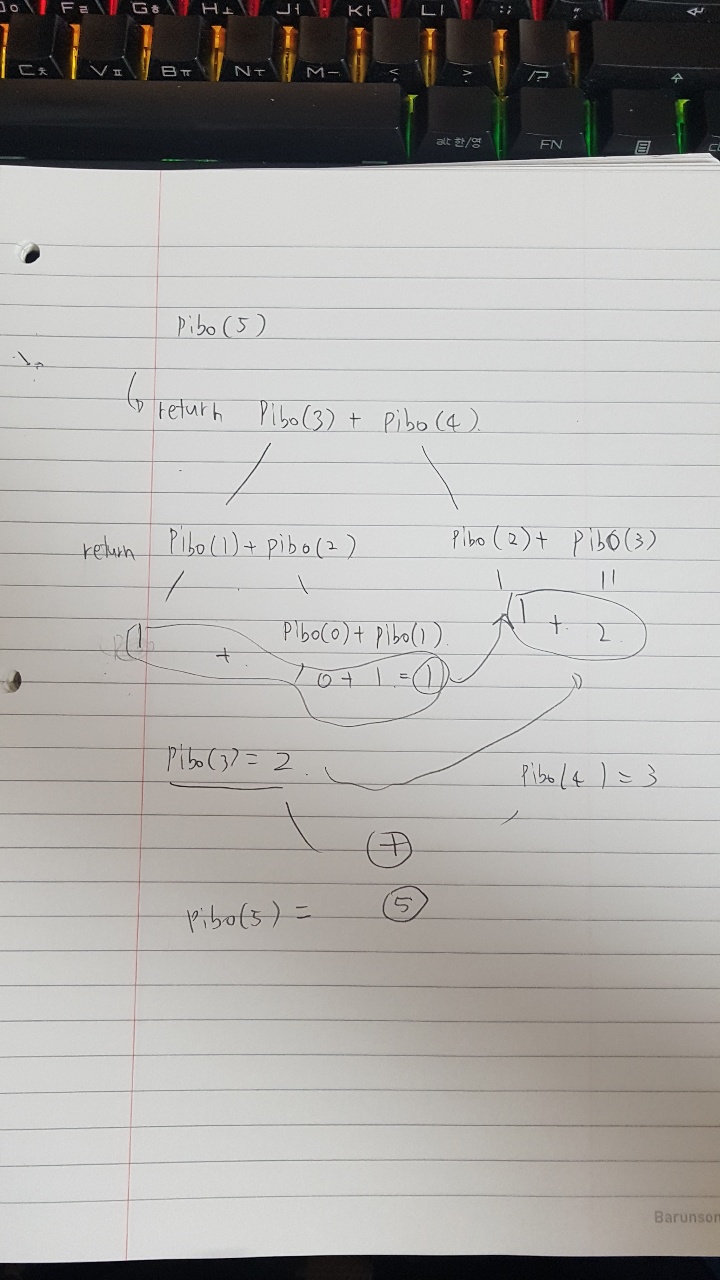 F ㄹ G ㅎ H ㅗ J ㅓ K ㅏ L ㅣ : ;
C ㅊ V ㅍ B ㅠ N ㅜ M ㅡ < > /?
alt 한/영 FN
pibo(5)
return Pibo(3) + pibo(4)
return Pibo(1) + pibo(2) Pibo(2) + pibo(3)
Pibo(0) + pibo(1) 1 + 2
1 + 0 + 1 = 1
Pibo(3) = 2 Pibo(4) = 3
+
pibo(5) = 5
Barunson